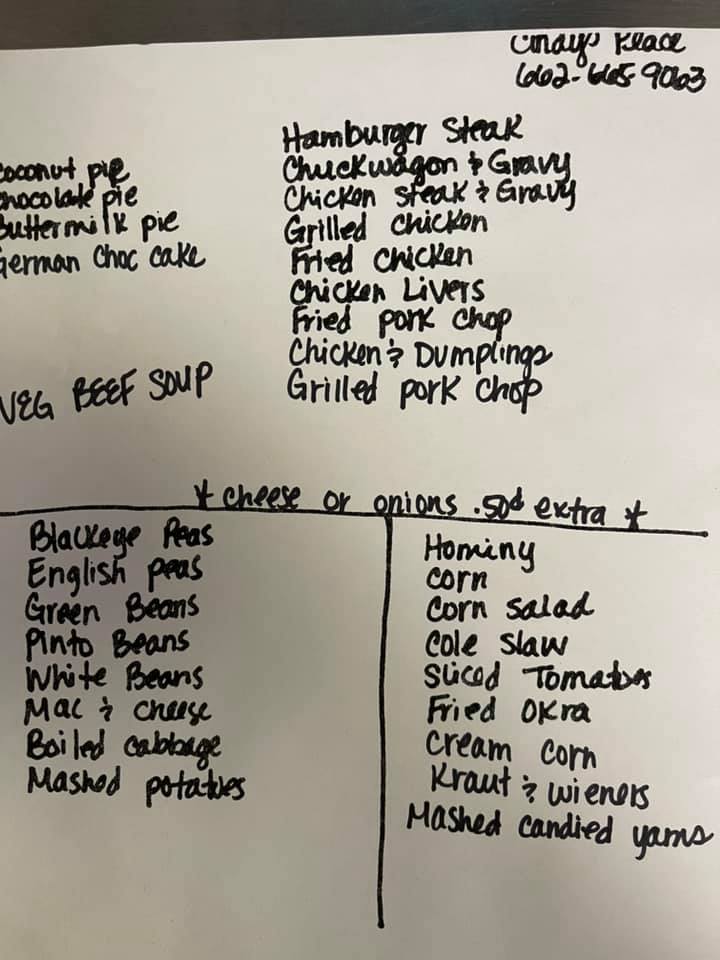 Cindy's Place
662-665-9063
Coconut pie
Chocolate pie
Buttermilk pie
German Choc cake
VEG BEEF SOUP
Hamburger Steak
Chuckwagon & Gravy
Chicken Steak & Gravy
Grilled Chicken
Fried Chicken
Chicken Livers
Fried pork chop
Chicken & Dumplings
Grilled pork chop
* cheese or onions .50¢ extra *
Blackeye Peas
English peas
Green Beans
Pinto Beans
White Beans
Mac & cheese
Boiled cabbage
Mashed potatoes
Hominy
corn
Corn salad
Cole slaw
Sliced Tomatoes
Fried OKra
Cream corn
Kraut & wieners
Mashed candied yams